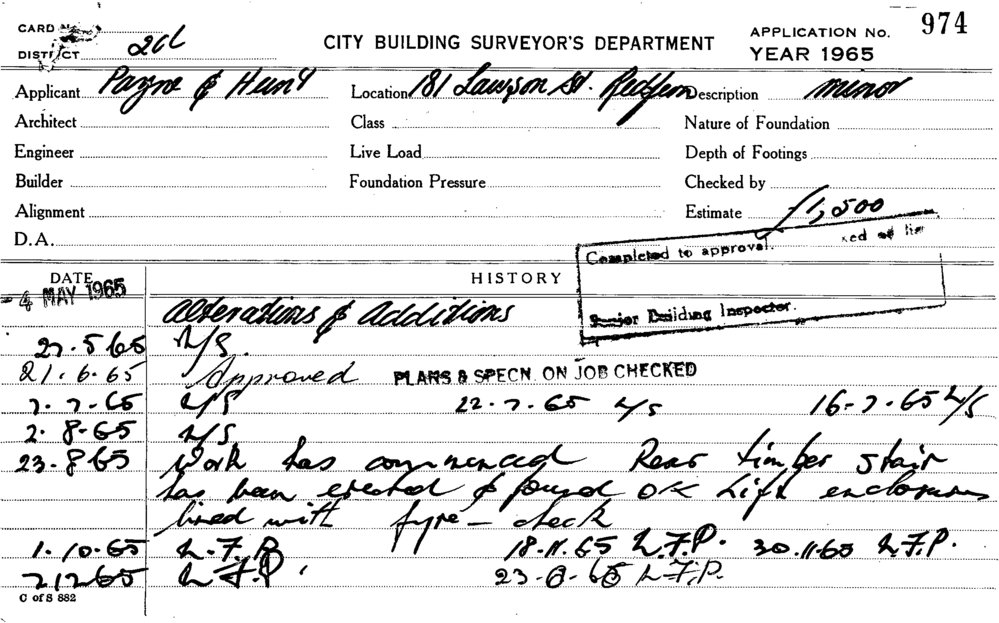 CARD
DISTRICT 26L CITY BUILDING SURVEYOR'S DEPARTMENT APPLICATION No. 974
YEAR 1965
Applicant Payne & Hunt Location 181 Lawson St. Redfern Description minor
Architect Class Nature of Foundation
Engineer Live Load Depth of Footings
Builder Foundation Pressure Checked by
Alignment Estimate £1,500
D.A.
Completed to approval.
DATE HISTORY
- 4 MAY 1965
Alterations & Additions
Senior Building Inspector.
27.5.65 N/S.
21.6.65 Approved PLANS & SPECN. ON JOB CHECKED
7.7.65 N/S 22.7.65 N/S 16-7.65 N/S
2.8.65 N/S
23.8.65 Work has commenced Rear timber stair
has been erected & found OK Lift enclosure
lined with fyre-check
1.10.65 L.F.P. 18.11.65 L.F.P. 30.11.65 L.F.P.
L.F.P. L.F.P.
C of S 882